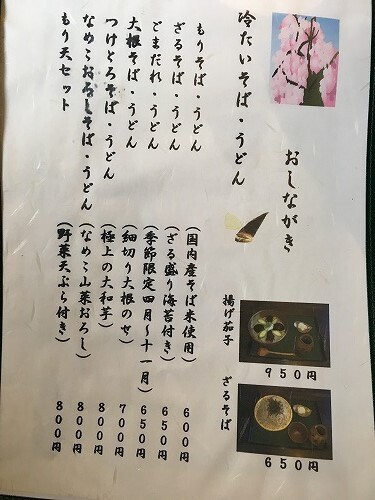 おしながき
揚げ茄子
950円
ざるそば
650円
冷たいそば・うどん
もりそば・うどん (国内産そば米使用) 600円
ざるそば・うどん (ざる盛り海苔付き) 650円
ごまだれ・うどん (季節限定四月〜十一月) 650円
大根そば・うどん (細切り大根のせ) 700円
つけとろそば・うどん (極上の大和芋) 800円
なめこおろしそば・うどん (なめこ山菜おろし) 800円
もり天セット (野菜天ぷら付き) 800円